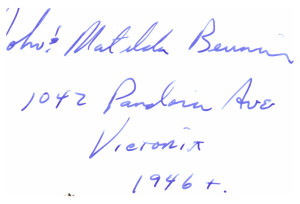 John & Matilda
1042 Pandora Ave
Victoria
1946 +.